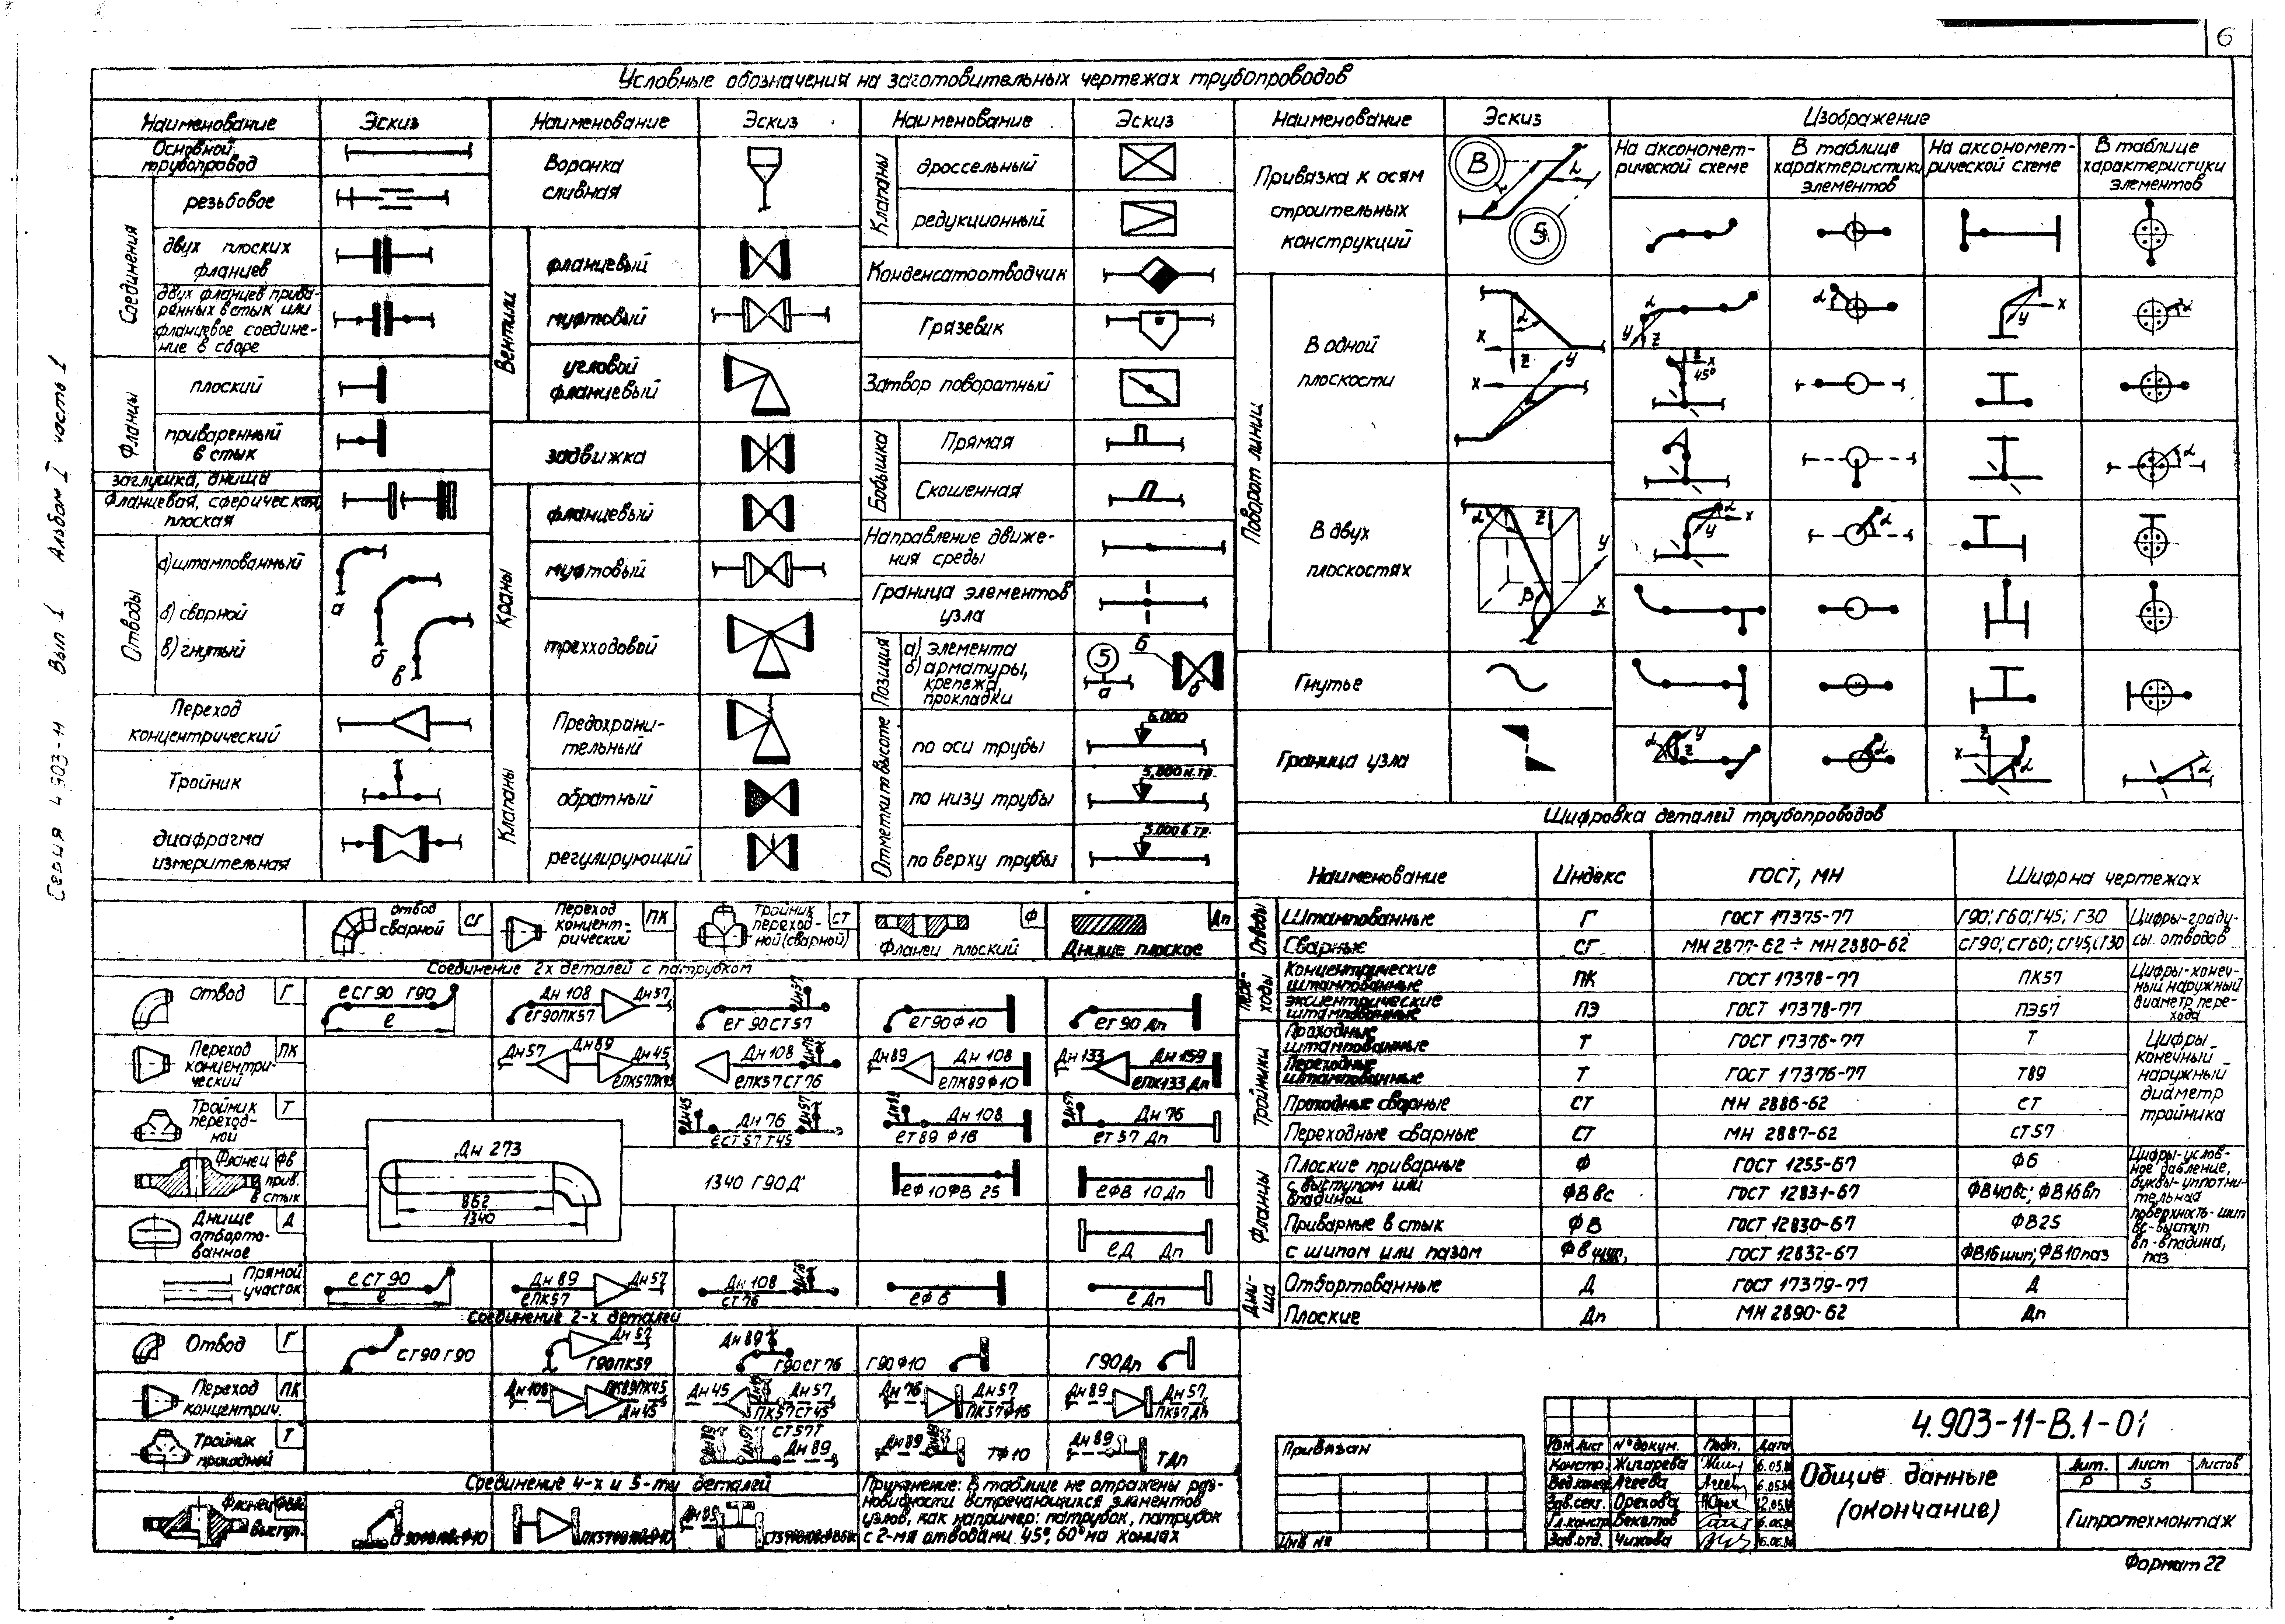 6
Условные обозначения на заготовительных чертежах трубопроводов
Наименование
Эскиз
Наименование
Эскиз
Наименование
Эскиз
Наименование
Эскиз
Изображение
На аксономет-
рической схеме
В таблице
характеристики
элементов
На аксономет-
рической схеме
В таблице
характеристики
элементов
Основной
трубопровод
Соединения
резьбовое
двух плоских
фланцев
двух фланцев прива-
ренных встык или
фланцевое соедине-
ние в сборе
Фланцы
плоский
приваренный
в стык
заглушка, днища
Фланцевая, сферическая,
плоская
Отводы
а) штампованный
б) сварной
в) гнутый
а
б
в
Переход
концентрический
Тройник
диафрагма
измерительная
Воронка
сливная
Вентили
фланцевый
муфтовый
угловой
фланцевый
задвижка
Краны
фланцевый
муфтовый
трехходовой
Клапаны
Предохрани-
тельный
обратный
регулирующий
Клапаны
дроссельный
редукционный
Конденсатоотводчик
Грязевик
Затвор поворотный
Бобышка
Прямая
Скошенная
Направление движе-
ния среды
Граница элементов
узла
Позиция
а) элемента
б) арматуры,
крепежа,
прокладки
5
а
б
б
Отметки по высоте
по оси трубы
5.000
по низу трубы
5.000 н.тр.
по верху трубы
5.000 в.тр.
Привязка к осям
строительных
конструкций
В
5
L
L
Поворот линии
В одной
плоскости
В двух
плоскостях
Гнутье
Граница узла
Шифровка деталей трубопроводов
Наименование
Индекс
ГОСТ, МН
Шифр на чертежах
Отводы
Штампованные
Г
ГОСТ 17375-77
Г90; Г60; Г45; Г30
Цифры-граду-
сы отводов
Сварные
СГ
МН 2877-62 ÷ МН 2880-62
СГ90; СГ60; СГ45; СГ30
Пере-
ходы
Концентрические
штампованные
ПК
ГОСТ 17378-77
ПК57
Цифры-конеч-
ный наружный
диаметр пере-
хода
эксцентрические
штампованные
ПЭ
ГОСТ 17378-77
ПЭ57
Тройники
Проходные
штампованные
Т
ГОСТ 17376-77
Т
Цифры-
конечный
наружный
диаметр
тройника
Переходные
штампованные
Т
ГОСТ 17376-77
Т89
Проходные сварные
СТ
МН 2886-62
СТ
Переходные сварные
СТ
МН 2887-62
СТ57
Фланцы
Плоские приварные
Ф
ГОСТ 1255-67
Ф6
Цифры-услов-
ное давление,
буквы-уплотни-
тельная
поверхность-шип
вс-выступ
вп-впадина,
паз
с выступом или
впадиной
ФВвс
ГОСТ 12831-67
ФВ40вс; ФВ16вп
Приварные в стык
ФВ
ГОСТ 12830-67
ФВ25
с шипом или пазом
ФВшип,
ГОСТ 12832-67
ФВ16шип; ФВ10паз
Дни-
ща
Отбортованные
Д
ГОСТ 17379-77
Д
Плоские
Дп
МН 2890-62
Дп
отвод
сварной
СГ
Переход
концент-
рический
ПК
Тройник
переход-
ной (сварной)
СТ
Фланец плоский
Ф
Днище плоское
Дп
Соединение 2х деталей с патрубком
Отвод
Г
еСГ90 Г90
е
Дн 108
Дн57
еГ90ПК57
Дн57
еГ90СТ57
еГ90Ф10
еГ90 Дп
Переход
концентри-
ческий
ПК
Дн57
Дн89
Дн45
еПК57ПК45
Дн 108
Дн76
еПК57СТ76
Дн89
Дн 108
еПК89Ф10
Дн 133
Дн 159
еПК133 Дп
Тройник
переход-
ной
Т
Дн45
Дн 76
Дн57
еСТ57Т45
Дн89
Дн 108
еТ89 Ф16
Дн57
Дн 76
еТ57 Дп
Фланец
прив.
в стык
ФВ
Дн 273
862
1340
1340 Г90Д
еФ10ФВ 25
еФВ 10Дп
Днище
отборто-
ванное
Д
еД Дп
Прямой
участок
еСТ90
е
Дн 89
Дн57
еПК57
Дн 108
Дн76
СТ76
еФ6
еДп
Соединение 2-х деталей
Отвод
Г
СГ90 Г90
Дн 57
Г90ПК59
Дн89
Г90СТ76
Г90Ф10
Г90Дп
Переход
концентрич.
ПК
Дн108
ПК89ПК45
Дн45
Дн45
Дн57
ПК57СТ45
Дн76
Дн57
ПК57Ф16
Дн89
Дн57
ПК57Дп
Тройник
проходной
Т
Дн89
Дн57
СТ57Т
Дн89
Дн89
Дн89
ТФ10
Дн89
ТДп
Соединение 4-х и 5-ти деталей
Фланец
выступ.
Дн89
Примечение: В таблице не отражены раз-
новидности встречающихся элементов
узлов, как например: патрубок, патрубок
с 2-мя отводами 45°, 60° на концах
Привязан
Инв №
4.903-11-В.1-01
Изм
Лист
№ докум.
Подп.
Дата
Констр.
Жигарева
6.05.80
Вед.констр
Агеева
6.05.80
Зав.сект.
Орехова
12.05.80
Гл.констр
Бекетов
6.06.80
Зав.отд.
Чихова
6.06.80
Общие данные
(окончание)
Лит.
Лист
Листов
Р
5
Гипротехмонтаж
Формат 22
Серия 4.903-11 Вып 1 Альбом I часть 1